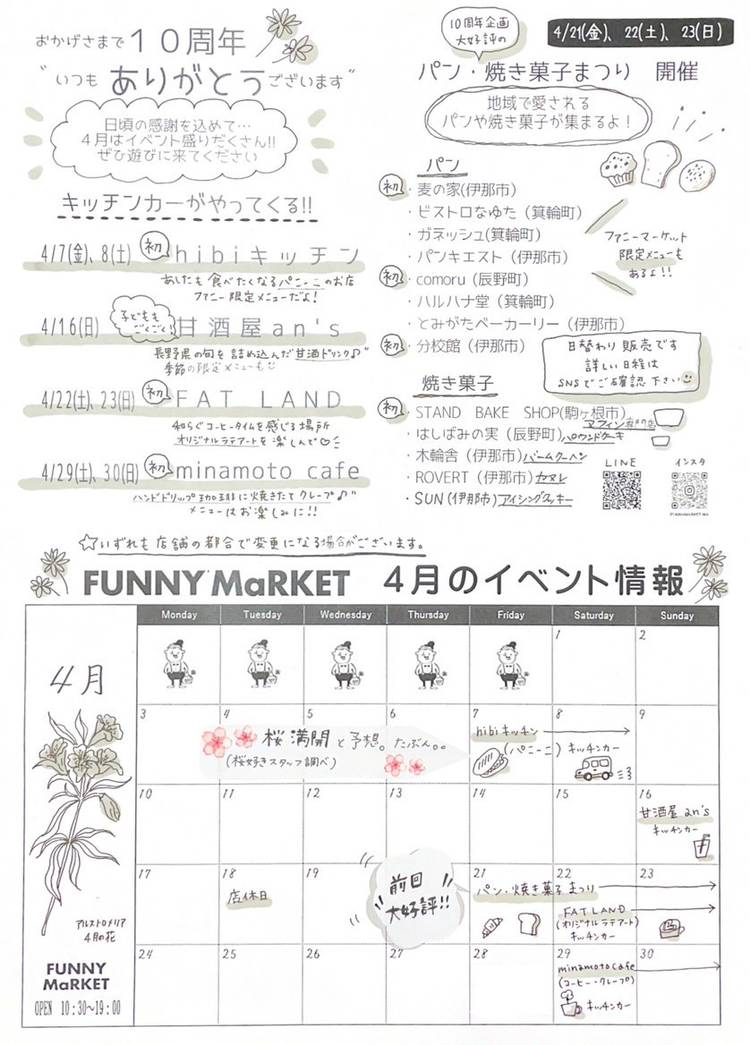 おかげさまで１０周年
"いつもありがとうございます"
日頃の感謝を込めて…
４月はイベント盛りだくさん!!
ぜひ遊びに来てください
キッチンカーがやってくる!!
4/7(金)、8(土) 初 hibiキッチン
あしたも食べたくなるパニーニのお店
ファニー限定メニューだよ!
4/16(日) 子どもも ごくごく! 甘酒屋an's
長野県の旬を詰め込んだ甘酒ドリンク♪"
季節の限定メニューも
4/22(土)、23(日) 初 FAT LAND
和らぐコーヒータイムを感じる場所
オリジナルラテアートを楽しんで♡
4/29(土)、30(日) 初 minamoto cafe
ハンドドリップ珈琲に焼きたてクレープ♪"
メニューはお楽しみに!!
10周年企画
大好評の
4/21(金)、22(土)、23(日)
パン・焼き菓子まつり　開催
地域で愛される
パンや焼き菓子が集まるよ！
パン
初 ・麦の家(伊那市)
・ビストロなゆた（箕輪町）
・ガネッシュ(箕輪町)
・パンキエスト（伊那市）
初 ・comoru（辰野町）
・ハルハナ堂（箕輪町）
・とみがたベーカーリー（伊那市）
初 ・分校館（伊那市）
ファニーマーケット
限定メニューも
あるよ!!
日替わり販売です
詳しい日程は
SNSでご確認下さい
焼き菓子
初 ・STAND BAKE SHOP(駒ヶ根市)
マフィン専門店
・はしばみの実（辰野町）パウンドケーキ
・木輪舎（伊那市）バームクーヘン
・ROVERT（伊那市）カヌレ
・SUN(伊那市)アイシングクッキー
LINE
インスタ
☆いずれも店舗の都合で変更になる場合がございます。
FUNNY MaRKET　４月のイベント情報
４月
Monday Tuesday Wednesday Thursday Friday Saturday Sunday
1 2
3 4 5 6 7 8 9
桜満開と予想。たぶん。。
(桜好きスタッフ調べ)
hibiキッチン
(パニーニ) キッチンカー
10 11 12 13 14 15 16
甘酒屋an's
キッチンカー
17 18 19 21 22 23
店休日
前回
大好評!!
パン・焼き菓子まつり
FAT LAND
(オリジナルラテアート)
キッチンカー
24 25 26 27 28 29 30
minamoto cafe
(コーヒー・クレープ)
キッチンカー
アルストロメリア
4月の花
FUNNY
MaRKET
OPEN 10:30〜19:00